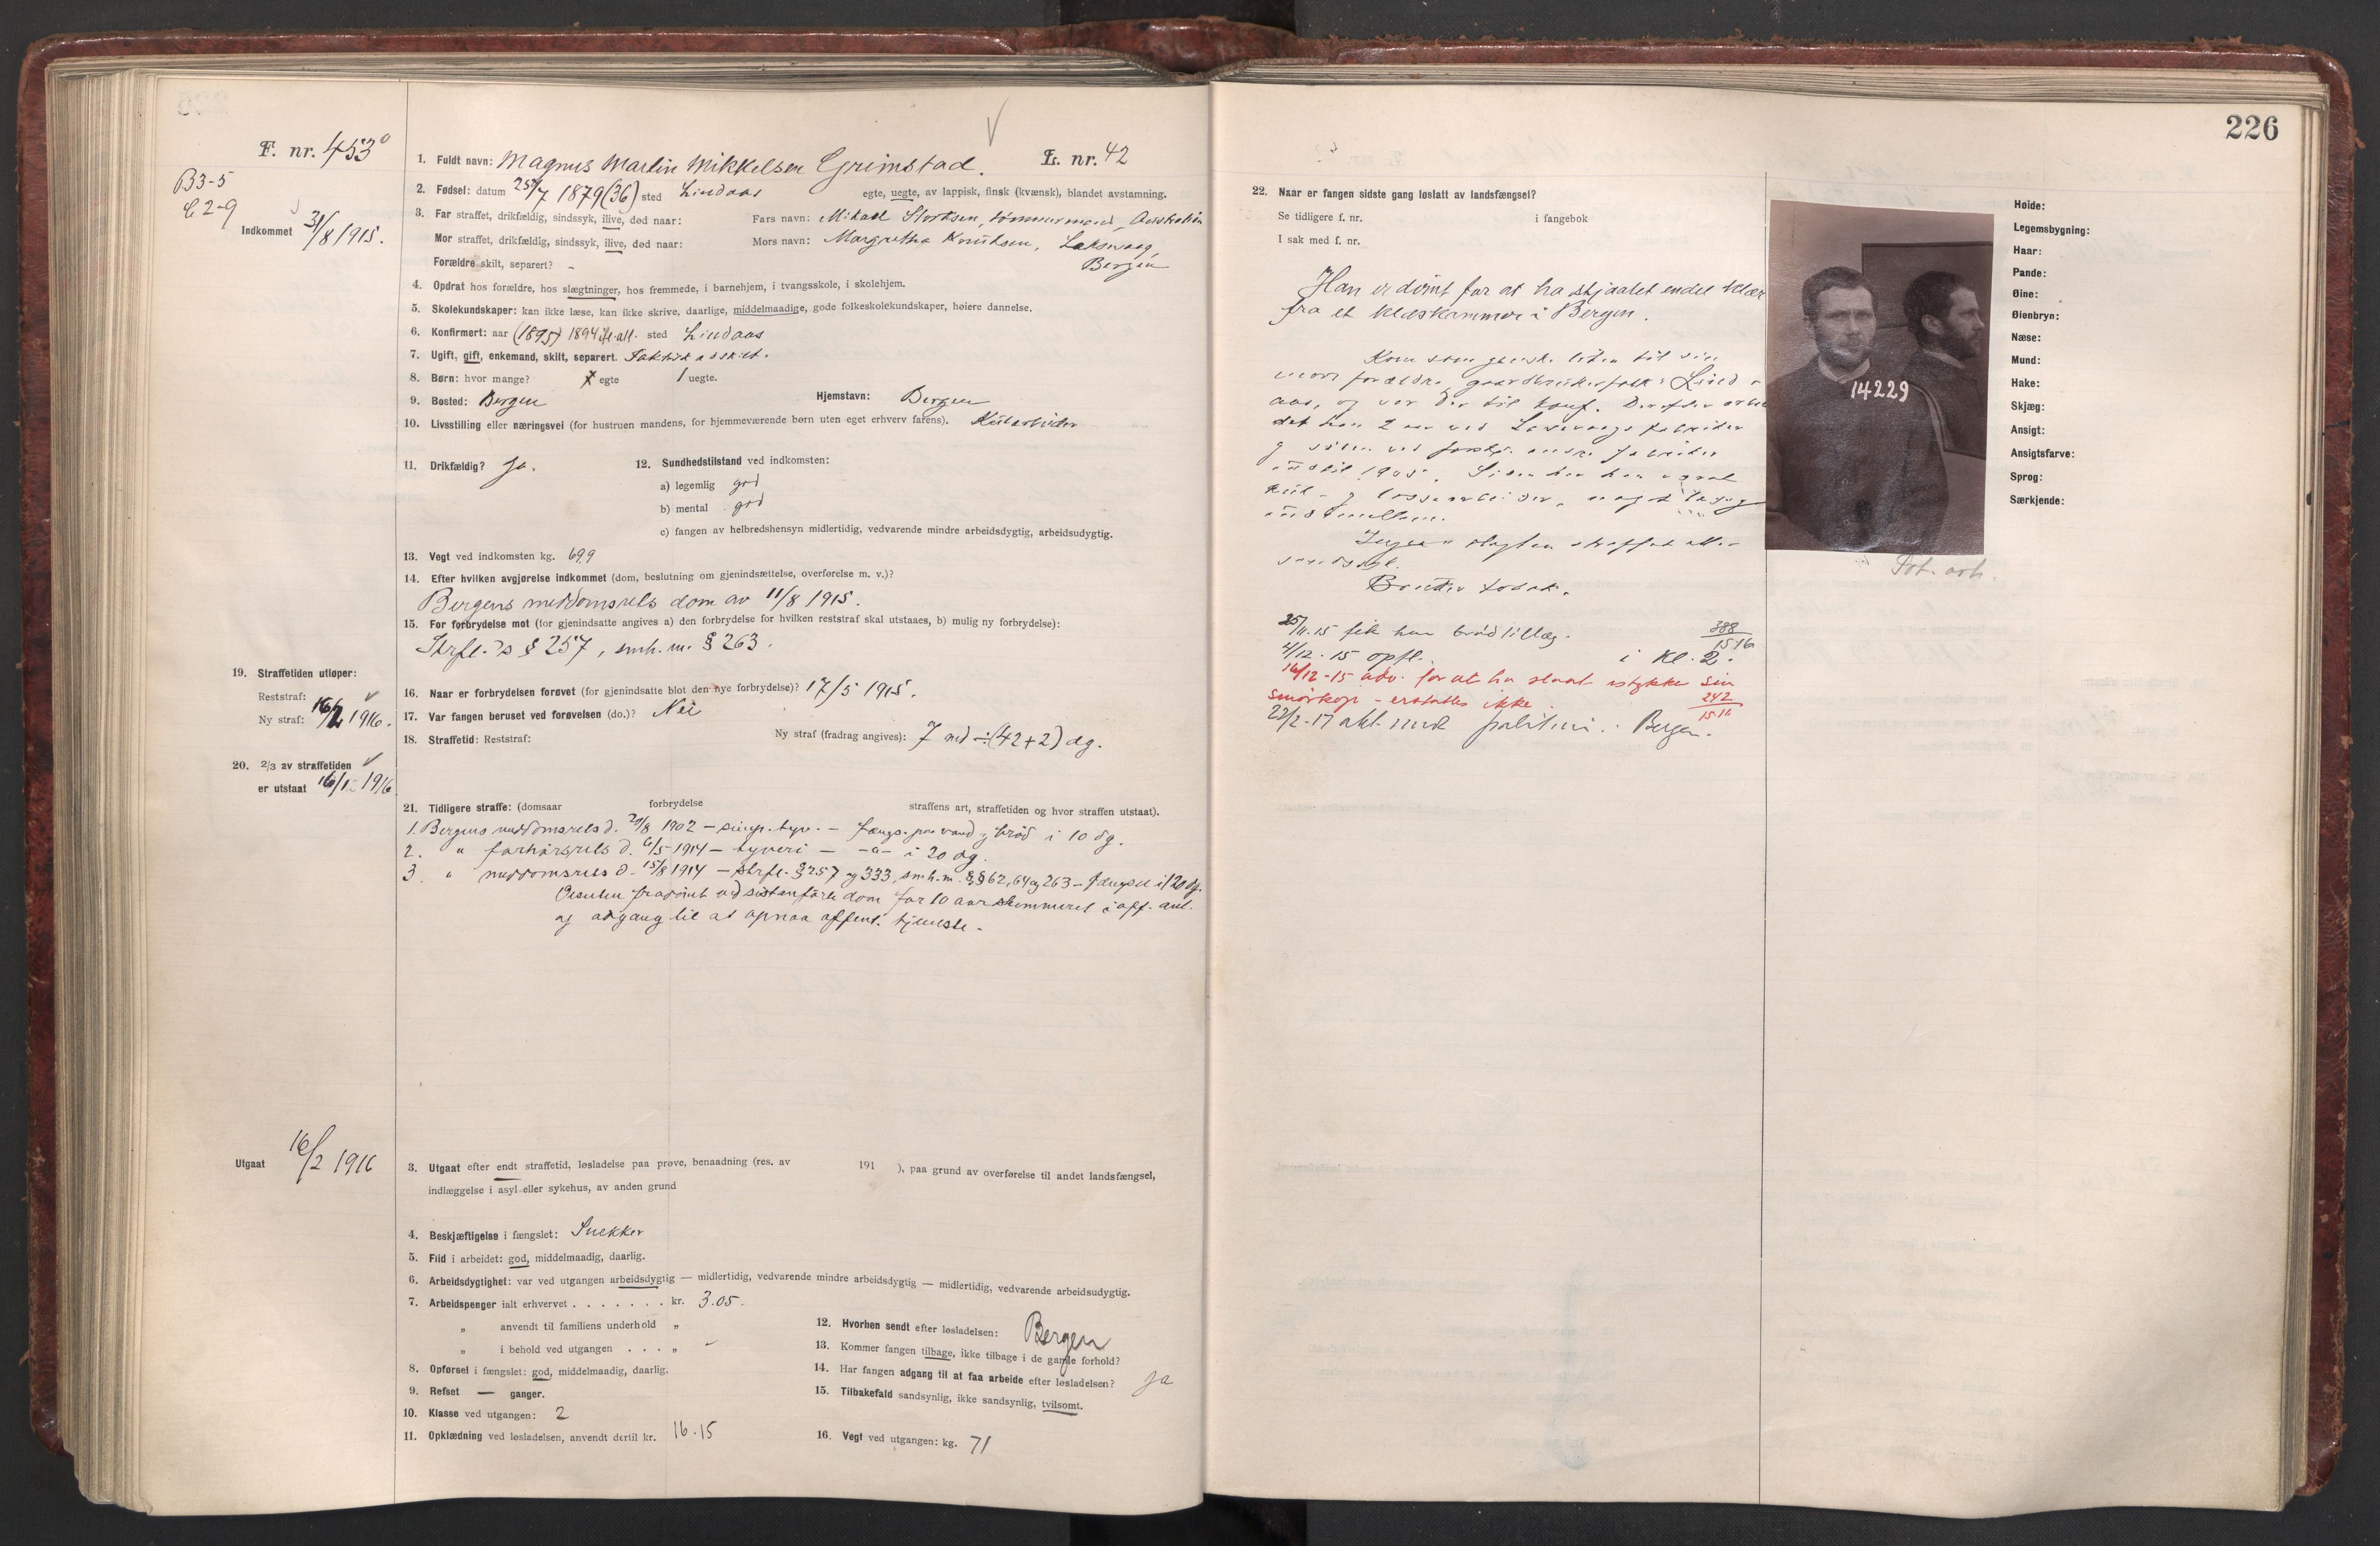 F. nr. 453
B3-5
C2-9
Indkommet 31/8 1915.
L. nr. 42
1. Fuldt navn: Magnus Martin Mikkelsen Grimstad.
2. Fødsel: datum 25/7 1879 (36) sted Lindaas egte, uegte, av lappisk, finsk (kvænsk), blandet avstamning.
3. Far straffet, drikfældig, sindssyk, ilive, død naar: Fars navn: Mikael tømmermand, Australien
Mor straffet, drikfældig, sindssyk, ilive, død naar: Mors navn: Margretha Knutsen, Laksevaag,
Bergen
Forældre skilt, separert? -
4. Opdrat hos forældre, hos slægtninger, hos fremmede, i barnehjem, i tvangsskole, i skolehjem.
5. Skolekundskaper: kan ikke læse, kan ikke skrive, daarlige, middelmaadige, gode folkeskolekundskaper, høiere dannelse.
6. Konfirmert: aar (1895) 1894 ifl. att. sted Lindaas
7. Ugift, gift, enkemand, skilt, separert. Faktisk adskilt.
8. Børn: hvor mange? egte 1 uegte.
9. Bosted: Bergen Hjemstavn: Bergen
10. Livsstilling eller næringsvei (for hustruen mandens, for hjemmeværende børn uten eget erhverv farens). Kularbeider
11. Drikfældig? Ja.
12. Sundhedstilstand ved indkomsten:
a) legemlig god
b) mental god
c) fangen av helbredshensyn midlertidig, vedvarende mindre arbeidsdygtig, arbeidsudygtig.
13. Vegt ved indkomsten kg. 69,9
14. Efter hvilken avgjørelse indkommet (dom, beslutning om gjenindsættelse, overførelse m. v.)?
Bergens meddomsrets dom av 11/8 1915.
15. For forbrydelse mot (for gjenindsatte angives a) den forbrydelse for hvilken reststraf skal utstaaes, b) mulig ny forbrydelse):
Strfl.s § 257, smh. m. § 263.
16. Naar er forbrydelsen forøvet (for gjenindsatte blot den nye forbrydelse)? 17/5 1915.
17. Var fangen beruset ved forøvelsen (do.)? Nei
18. Straffetid: Reststraf: Ny straf (fradrag angives): 7 md ÷ (42+2) dg.
19. Straffetiden utløper:
Reststraf:
Ny straf: 16/2 1916.
20. 2/3 av straffetiden
er utstaat 16/12 1916
21. Tidligere straffe: (domsaar forbrydelse straffens art, straffetiden og hvor straffen utstaat).
1. Bergens meddomsrets d. 20/8 1902 – simp. tyv. – fængs. paa vand og brød i 10 dg.
2. " forhørsrets d. 6/5 1914 – tyveri – -"- i 20 dg.
3. " meddomsrets d. 15/8 1914 – strfl. §257 og 333, smh. m. §§ 62, 64 og 263 – fængsel i 120 dg.
Desuten fradømt ved sistanførte dom for 10 aar stemmeret i off. anl.
og adgang til at opnaa offent. tjeneste.
Utgaat 16/2 1916
3. Utgaat efter endt straffetid, løsladelse paa prøve, benaadning (res. av 191 ), paa grund av overførelse til andet landsfængsel,
indlæggelse i asyl eller sykehus, av anden grund
4. Beskjæftigelse i fængslet: Snekker
5. Flid i arbeidet: god, middelmaadig, daarlig.
6. Arbeidsdygtighet: var ved utgangen arbeidsdygtig — midlertidig, vedvarende mindre arbeidsdygtig — midlertidig, vedvarende arbeidsudygtig.
7. Arbeidspenger ialt erhvervet . . . . . . . kr. 3.05.
" anvendt til familiens underhold "
" i behold ved utgangen . . . " -
8. Opførsel i fængslet: god, middelmaadig, daarlig.
9. Refset — ganger.
10. Klasse ved utgangen: 2
11. Opklædning ved løsladelsen, anvendt dertil kr. 16.15
12. Hvorhen sendt efter løsladelsen: Bergen
13. Kommer fangen tilbage, ikke tilbage i de gamle forhold?
14. Har fangen adgang til at faa arbeide efter løsladelsen? Ja
15. Tilbakefald sandsynlig, ikke sandsynlig, tvilsomt.
16. Vegt ved utgangen: kg. 71
226
22. Naar er fangen sidste gang løslatt av landsfængsel?
Se tidligere f. nr. i fangebok
I sak med f. nr.
Han er dømt for at ha stjaalet endel klær
fra et klæskammer i Bergen.
Kom som ganske liten til sin
mors forældre, gaardbrukerfolk i Lind-
aas, og var der til konf. Derefter arbei
det han 2 aar ved Laksevaags fabrikker
og siden ved forskj. andre fabrikker
indtil 1905. Siden har han været
kul- og lossearbeider, noget
indimellem.
Ingen i slegten straffet eller
sindssyk.
Bruker tobak.
25/11-15 fik han brødtillæg. 388/1516
4/12-15 opfl. i Kl. 2.
16/12-15 adv. for at ha slaat istykke sin
smørkop - erstattes ikke 242/1516
23/2-17 akt. med politim. i Bergen.
14229
Fot. ark.
Høide:
Legemsbygning:
Haar:
Pande:
Øine:
Øienbryn:
Næse:
Mund:
Hake:
Skjæg:
Ansigt:
Ansigtsfarve:
Sprog:
Særkjende: